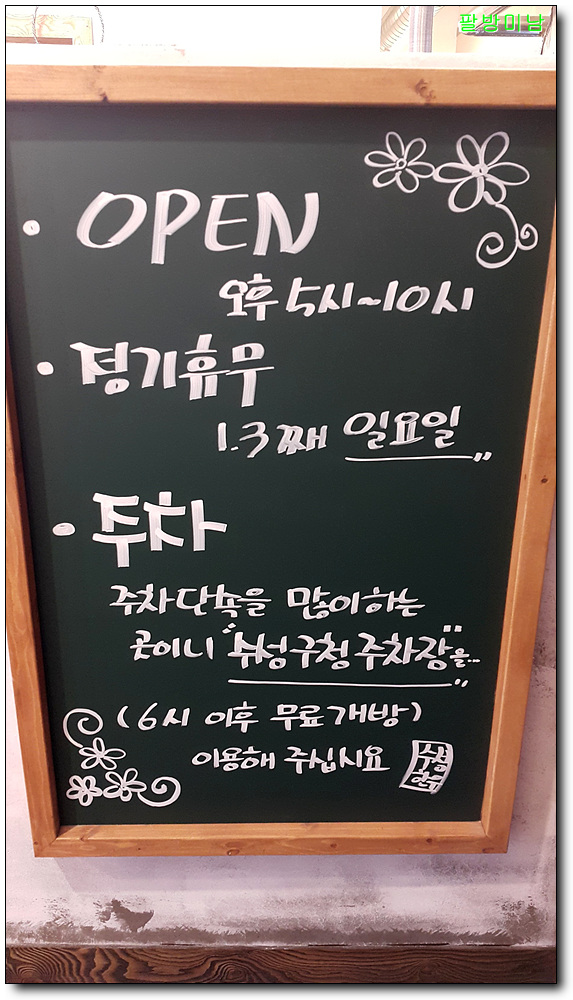 팔방미남
· OPEN
오후 5시~10시
· 정기휴무
1.3째 일요일"
· 주차
주차단속을 많이하는
곳이니 "수성구청주차장"을...
(6시 이후 무료개방)
이용해 주십시요